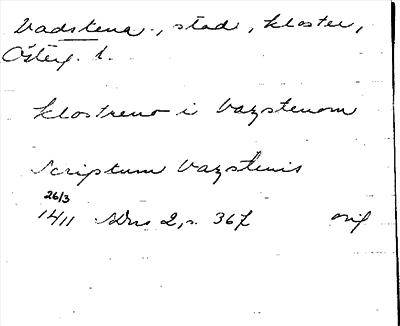 Vadstena, stad, kloster,
Österg. l.
klostreno i Vazstenom
Scriptum Vazstenis
26/3
1411 SDns 2, s. 367 orig